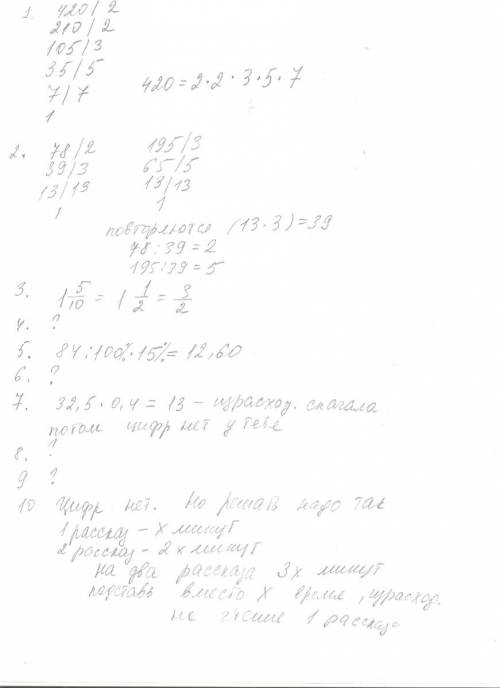 1. 420/2
210/2
105/3
35/5
7/7 420=2·2·3·5·7
1
2. 78/2 195/3
39/3 65/5
13/13 13/13
1 1
повторяются (13·3)=39
78:39=2
195:39=5
3. 1 5/10 = 1 1/2 = 3/2
4. ?
5. 84:100%·15%=12,60
6. ?
7. 32,5·0,4=13 – израсход. сначала
потом цифр нет у тебе
8. ?
9 ?
10 Цифр нет. Но решать надо так
1 рассказ – х минут
2 рассказ – 2х минут
на два рассказа 3х минут
подставь вместо х время, израсход.
на чтение 1 рассказа